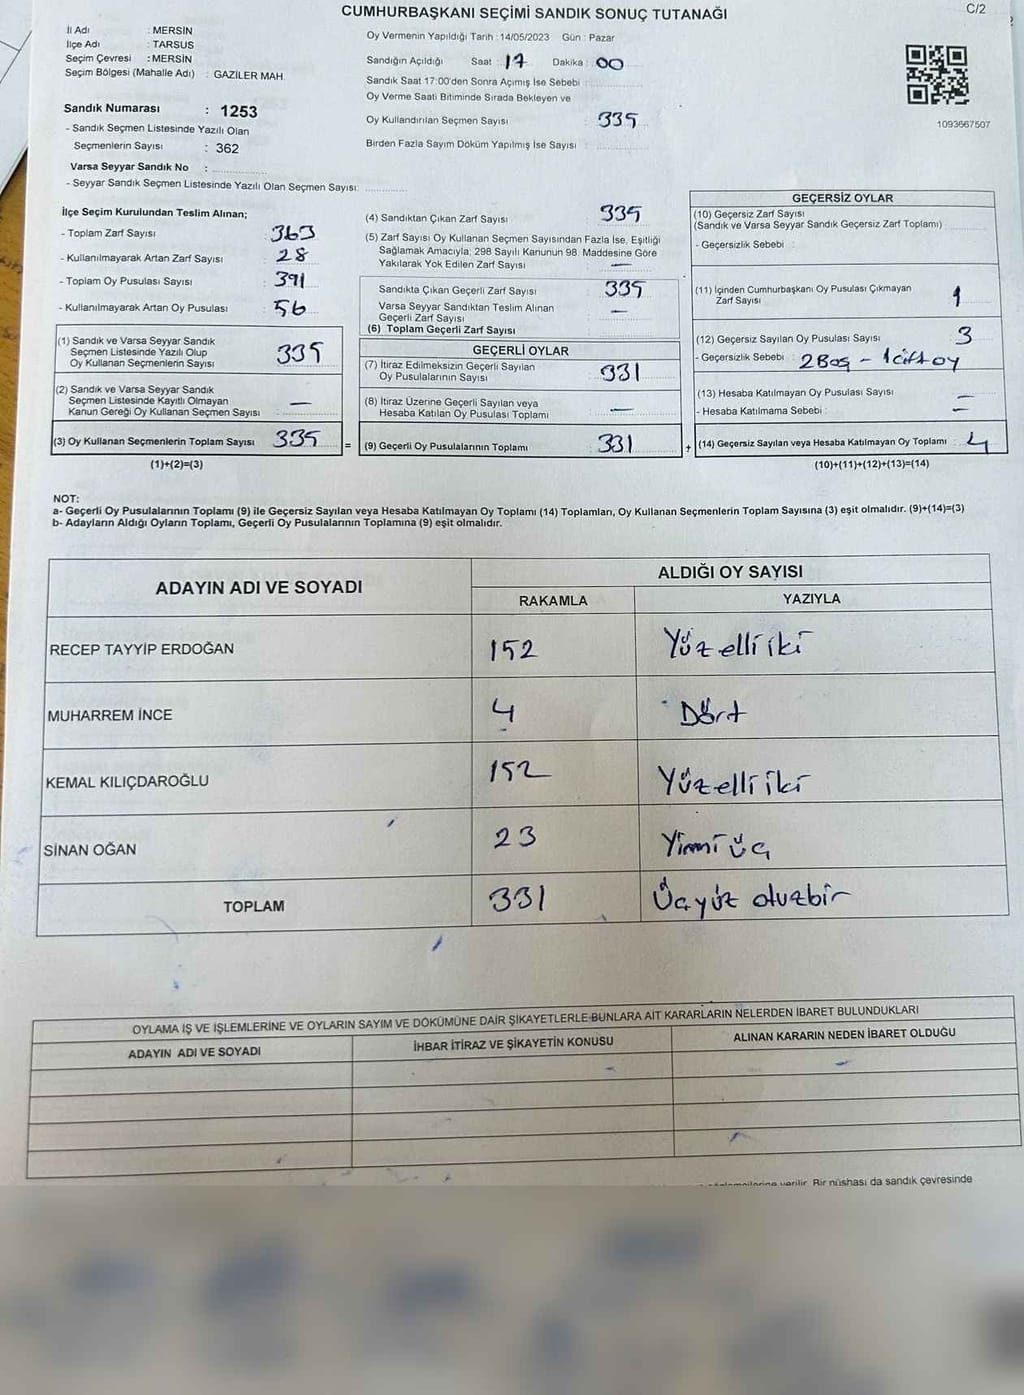 CUMHURBAŞKANI SEÇİMİ SANDIK SONUÇ TUTANAĞI
C/2
İl Adı : MERSİN
İlçe Adı : TARSUS
Seçim Çevresi : MERSİN
Seçim Bölgesi (Mahalle Adı) : GAZİLER MAH.
Sandık Numarası : 1253
- Sandık Seçmen Listesinde Yazılı Olan
Seçmenlerin Sayısı : 362
Varsa Seyyar Sandık No :
- Seyyar Sandık Seçmen Listesinde Yazılı Olan Seçmen Sayısı:
Oy Vermenin Yapıldığı Tarih : 14/05/2023 Gün : Pazar
Sandığın Açıldığı Saat : 17 Dakika : 00
Sandık Saat 17:00'den Sonra Açımış İse Sebebi :
Oy Verme Saati Bitiminde Sırada Bekleyen ve
Oy Kullandırılan Seçmen Sayısı : 335
Birden Fazla Sayım Döküm Yapılmış İse Sayısı :
1093667507
İlçe Seçim Kurulundan Teslim Alınan;
- Toplam Zarf Sayısı : 363
- Kullanılmayarak Artan Zarf Sayısı : 28
- Toplam Oy Pusulası Sayısı : 391
- Kullanılmayarak Artan Oy Pusulası : 56
(1) Sandık ve Varsa Seyyar Sandık
Seçmen Listesinde Yazılı Olup
Oy Kullanan Seçmenlerin Sayısı : 335
(2) Sandık ve Varsa Seyyar Sandık
Seçmen Listesinde Kayıtlı Olmayan
Kanun Gereği Oy Kullanan Seçmen Sayısı : —
(3) Oy Kullanan Seçmenlerin Toplam Sayısı : 335
(1)+(2)=(3)
(4) Sandıktan Çıkan Zarf Sayısı : 335
(5) Zarf Sayısı Oy Kullanan Seçmen Sayısından Fazla İse, Eşitliği
Sağlamak Amacıyla; 298 Sayılı Kanunun 98. Maddesine Göre
Yakılarak Yok Edilen Zarf Sayısı : —
Sandıkta Çıkan Geçerli Zarf Sayısı : 335
Varsa Seyyar Sandıktan Teslim Alınan
Geçerli Zarf Sayısı : —
(6) Toplam Geçerli Zarf Sayısı
GEÇERLİ OYLAR
(7) İtiraz Edilmeksizin Geçerli Sayılan
Oy Pusulalarının Sayısı : 331
(8) İtiraz Üzerine Geçerli Sayılan veya
Hesaba Katılan Oy Pusulası Toplamı : —
= (9) Geçerli Oy Pusulalarının Toplamı : 331
GEÇERSİZ OYLAR
(10) Geçersiz Zarf Sayısı
(Sandık ve Varsa Seyyar Sandık Geçersiz Zarf Toplamı)
- Geçersizlik Sebebi :
(11) İçinden Cumhurbaşkanı Oy Pusulası Çıkmayan
Zarf Sayısı : 1
(12) Geçersiz Sayılan Oy Pusulası Sayısı : 3
- Geçersizlik Sebebi : 2 Boş - 1 Çift oy
(13) Hesaba Katılmayan Oy Pusulası Sayısı : —
- Hesaba Katılmama Sebebi : —
+ (14) Geçersiz Sayılan veya Hesaba Katılmayan Oy Toplamı : 4
(10)+(11)+(12)+(13)=(14)
NOT:
a- Geçerli Oy Pusulalarının Toplamı (9) ile Geçersiz Sayılan veya Hesaba Katılmayan Oy Toplamı (14) Toplamları, Oy Kullanan Seçmenlerin Toplam Sayısına (3) eşit olmalıdır. (9)+(14)=(3)
b- Adayların Aldığı Oyların Toplamı, Geçerli Oy Pusulalarının Toplamına (9) eşit olmalıdır.
ADAYIN ADI VE SOYADI
ALDIĞI OY SAYISI
RAKAMLA YAZIYLA
RECEP TAYYİP ERDOĞAN 152 Yüzelli iki
MUHARREM İNCE 4 Dört
KEMAL KILIÇDAROĞLU 152 Yüzelli iki
SİNAN OĞAN 23 Yirmi üç
TOPLAM 331 Üçyüz otuzbir
OYLAMA İŞ VE İŞLEMLERİNE VE OYLARIN SAYIM VE DÖKÜMÜNE DAİR ŞİKAYETLERLE BUNLARA AİT KARARLARIN NELERDEN İBARET BULUNDUKLARI
ADAYIN ADI VE SOYADI İHBAR İTİRAZ VE ŞİKAYETİN KONUSU ALINAN KARARIN NEDEN İBARET OLDUĞU
verilir. Bir nüshası da sandık çevresinde